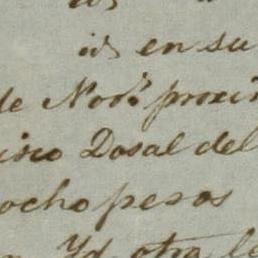 id en su
de Nov.e proxi
isco Dosal del
ocho pesos
Yd otra